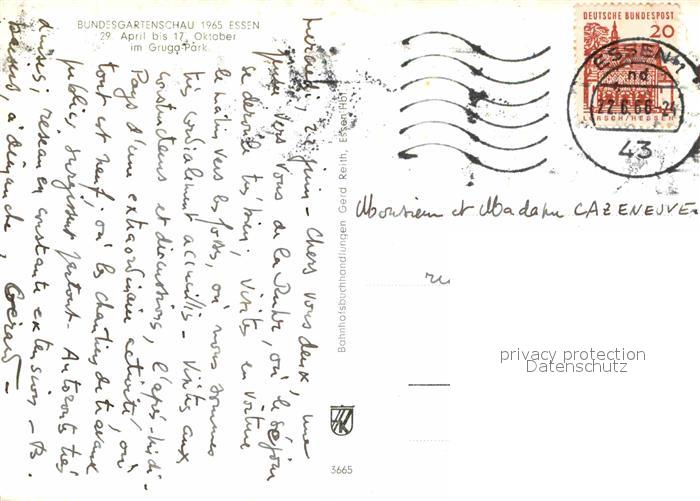 BUNDESGARTENSCHAU 1965 ESSEN
29. April bis 17. Oktober
im Gruga-Park
Mercredi, 22 juin – Chers vous deux, une
pensée vers vous de la Ruhr, où le séjour
se déroule très bien. Visites en voiture
le matin vers les , où nous sommes
très cordialement accueillis – Visites aux
constructeurs et discussions, l'après-midi –
Pays d'une extraordinaire activité, où
tout est neuf, où les chantiers de travaux
publics surgissent partout – Autoroutes très
denses, réseau en constante extension – B.
baisers, à dimanche, Gérard –
Bahnhofsbuchhandlungen Gerd Reith, Essen/Hbf.
3665
DEUTSCHE BUNDESPOST
20
LORSCH/HESSEN
ESSEN 1
22.6.66-24
43
Monsieur et Madame CAZENEUVE
privacy protection
Datenschutz